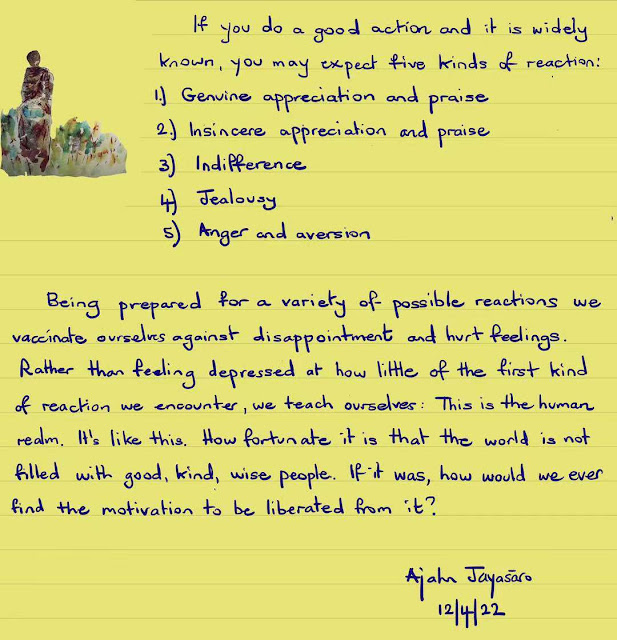 If you do a good action and it is widely
known, you may expect five kinds of reaction:
1) Genuine appreciation and praise
2) Insincere appreciation and praise
3) Indifference
4) Jealousy
5) Anger and aversion
Being prepared for a variety of possible reactions we
vaccinate ourselves against disappointment and hurt feelings.
Rather than feeling depressed at how little of the first kind
of reaction we encounter, we teach ourselves: This is the human
realm. It's like this. How fortunate it is that the world is not
filled with good, kind, wise people. If it was, how would we ever
find the motivation to be liberated from it?
Ajahn Jayasāro
12/4/22